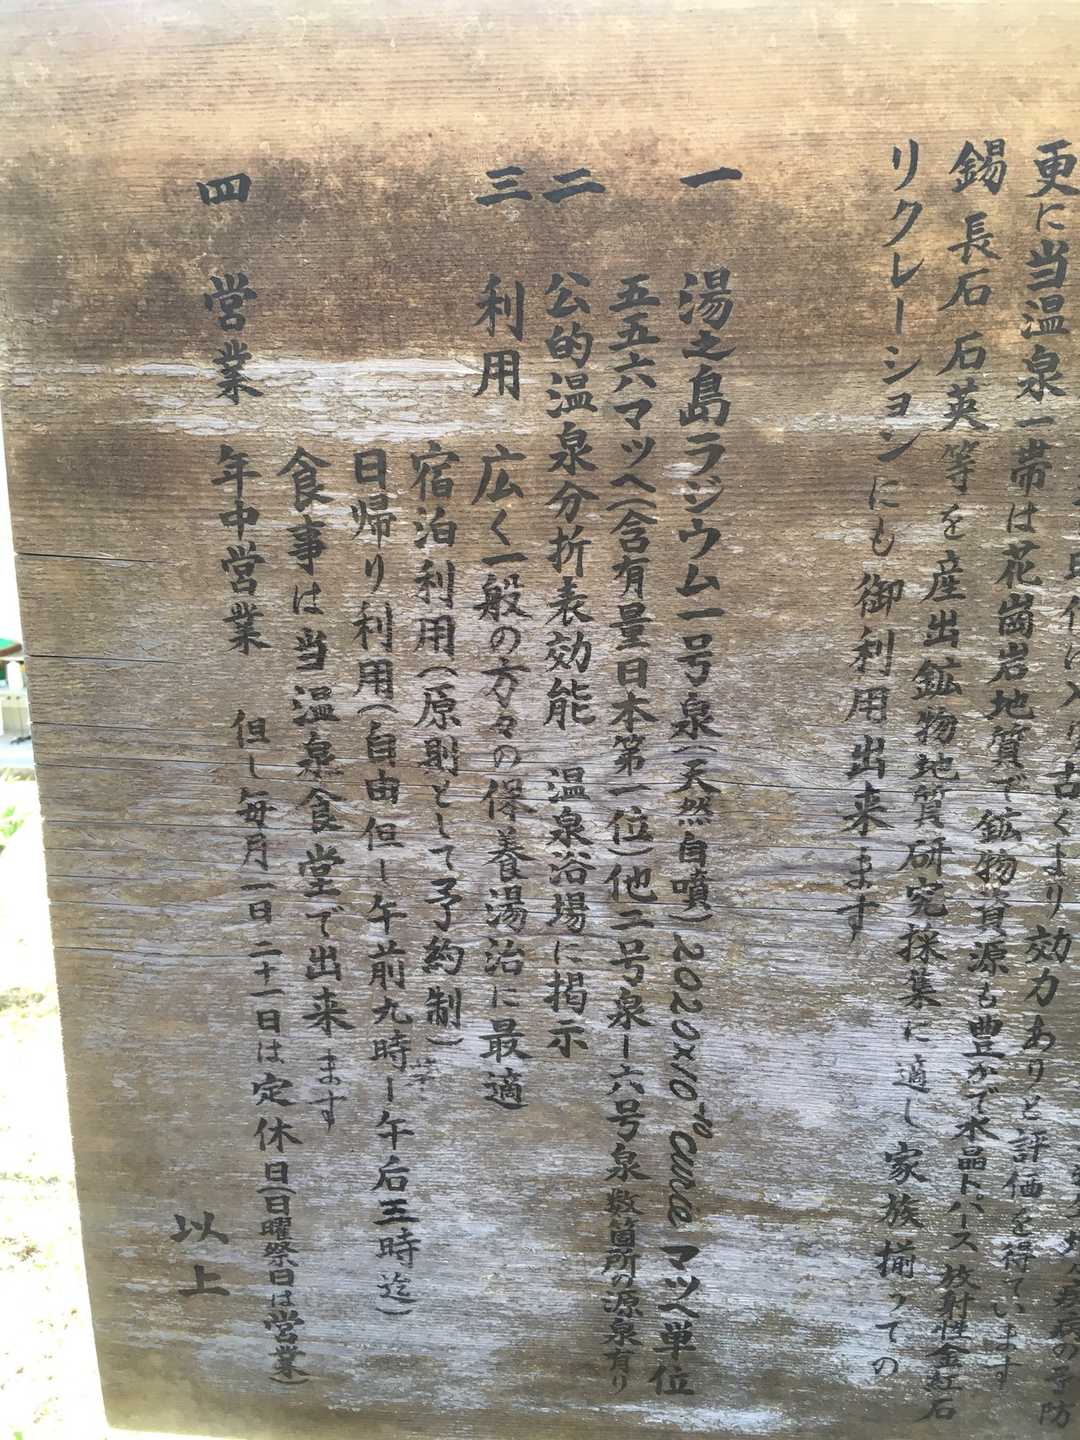 効力ありと評価を得ています
更に当温泉一帯は花崗岩地質で鉱物資源も豊かで水晶トパース 放射性金紅石
錫 長石 石英等を産出鉱物地質研究採集に適し家族揃っての
リクレーションにも御利用出来ます
一 湯之島ラジウム一号泉(天然自噴)2020×10⁻¹⁰Curie マッヘ単位
五五六マッヘ(含有量日本第一位)他二号泉ー六号泉 数箇所の源泉有り
二 公的温泉分折表効能 温泉浴場に掲示
三 利用 広く一般の方々の保養湯治に最適
宿泊利用(原則として予約制)
日帰り利用(自由但し午前九時ー午后三時迄)
食事は当温泉食堂で出来ます
四 営業 年中営業 但し毎月一日 二十一日は定休日(日曜祭日は営業)
以上